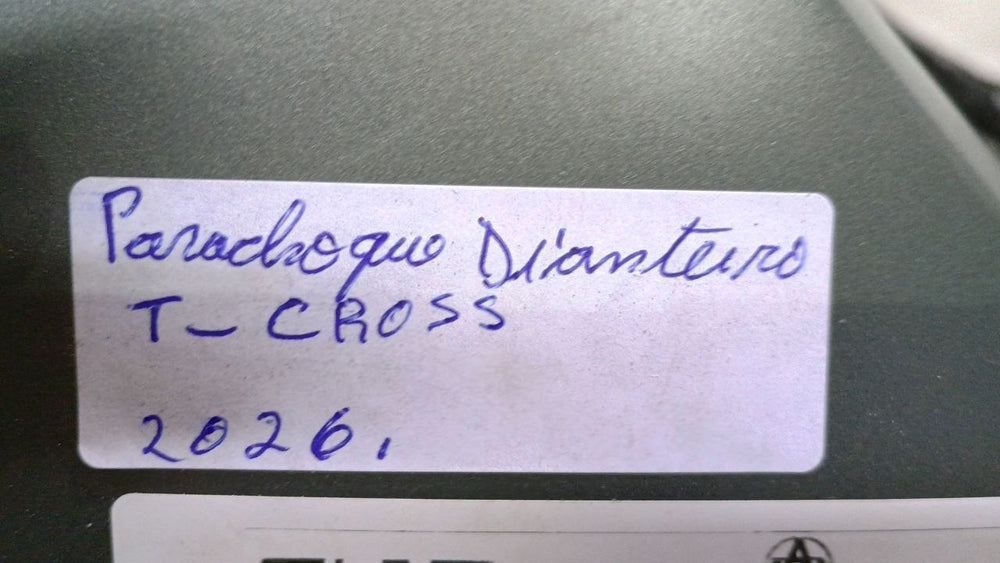 Parachoque Dianteiro
T-CROSS
2026.